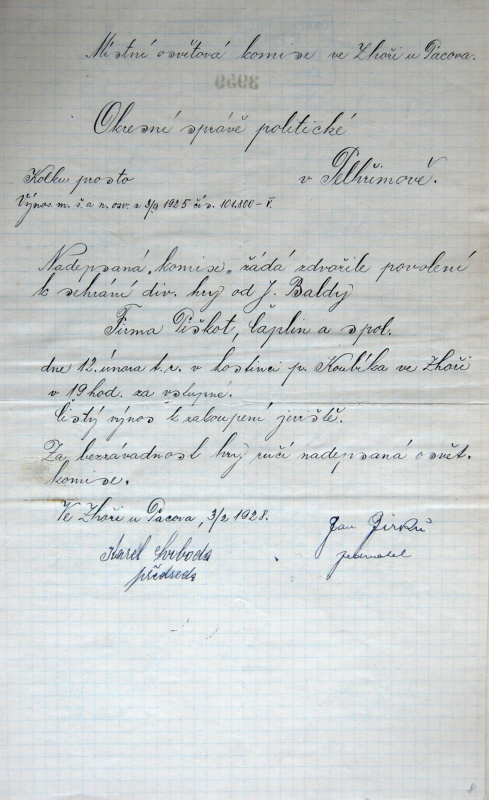 Místní osvětová komise ve Zhoři u Pacova.
Okresní správě politické
v Pelhřimově.
Kolku prosto
Výnos. m. š. a n. osv. z 3/9 1925 čís. 101.800-V.
Nadepsaná „komise„ žádá zdvořile povolení
k sehrání div. hry od J. Baldy
Firma Piškot, Čaplin a spol.
dne 12. února t.r. v hostinci p. Koubíka ve Zhoři
v 19 hod. za vstupné.
Čistý výnos k zakoupení jeviště.
Za bezzávadnost hry ručí nadepsaná osvět.
komise.
Ve Zhoři u Pacova, 3/2 1928.
Jan Jirků
jednatel
Karel Svoboda
předseda
8